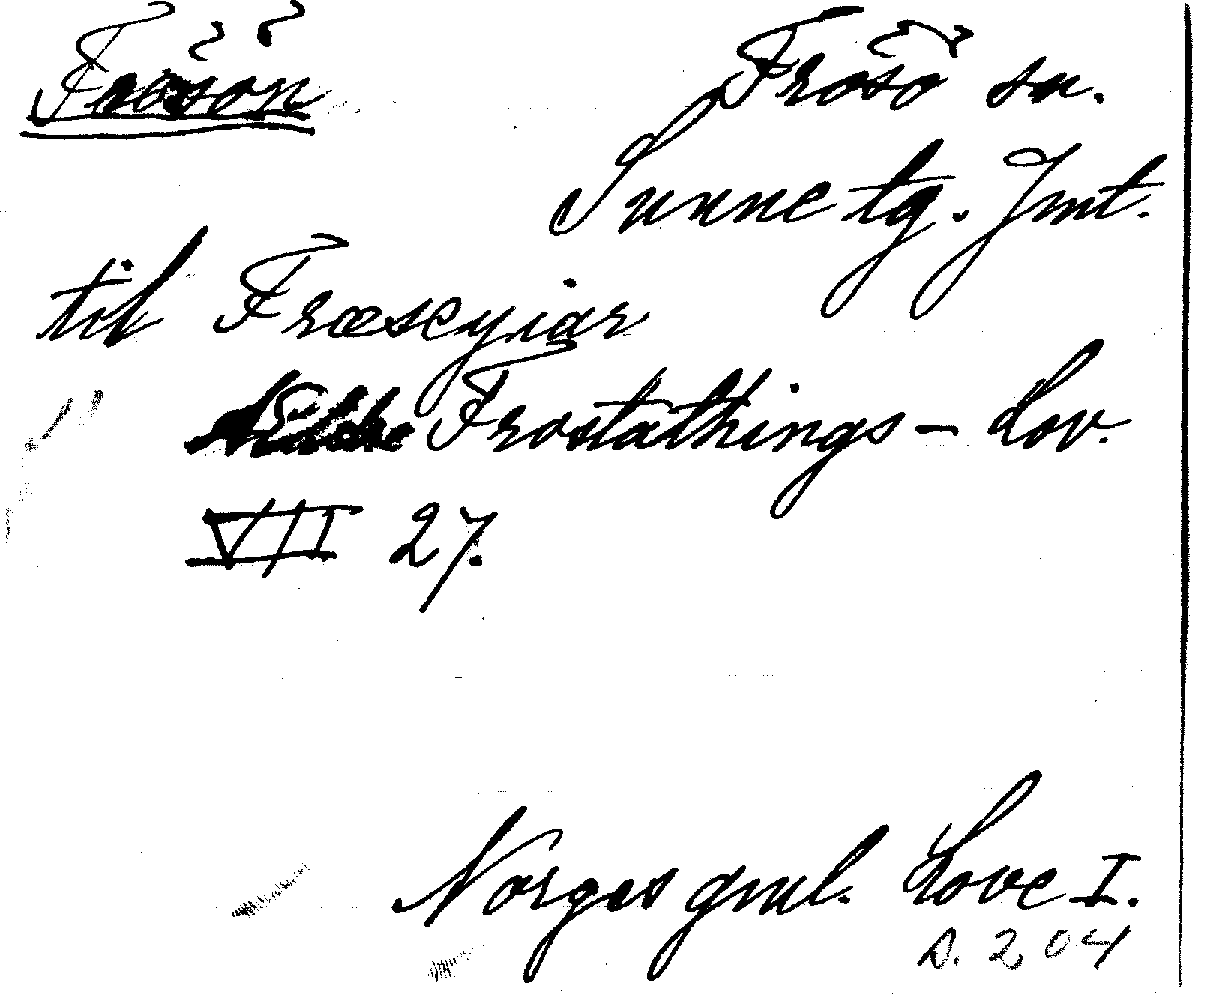 Frösön
Frösö sn.
Sunne tg. Jmt.
til Fræseyiar
Frostathings - Lov.
VII 27.
Norges gml. Love I.
s. 204